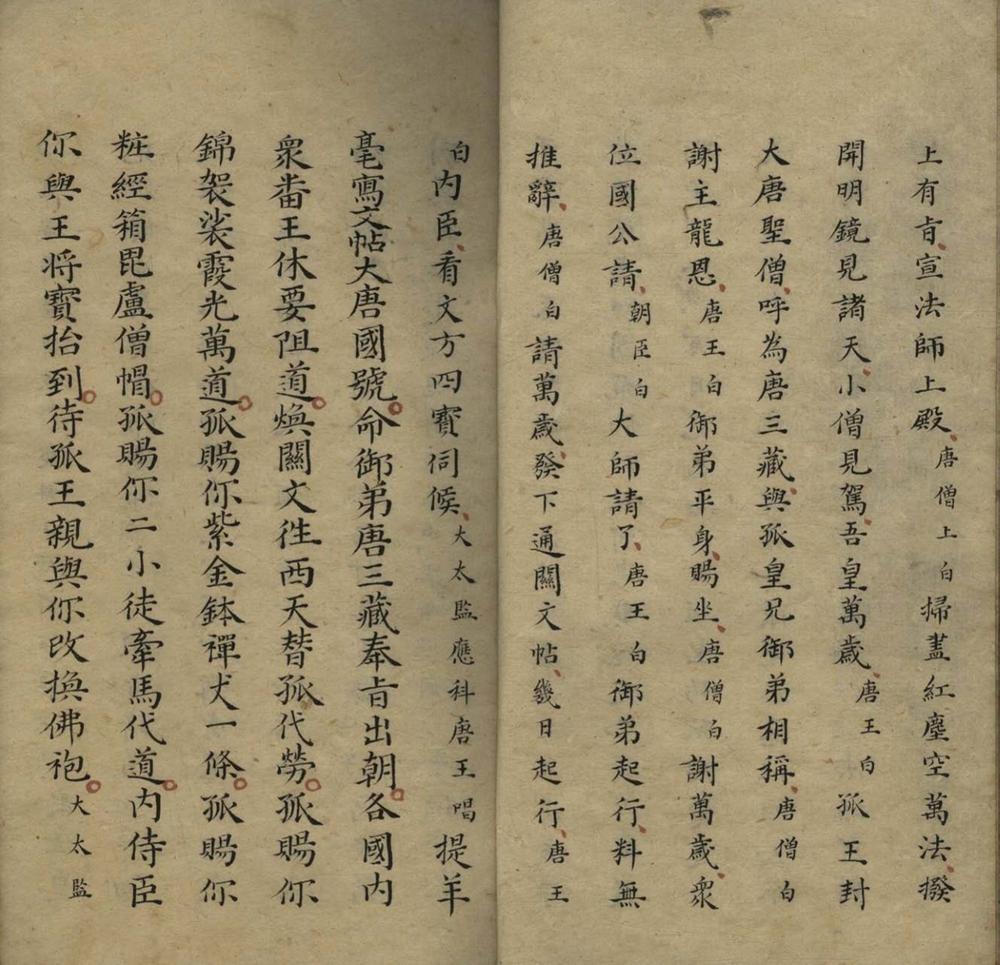 上有旨宣法師上殿唐僧上白掃盡紅塵空萬法撥
開明鏡見諸天小僧見駕吾皇萬歲唐王白孤王封
大唐聖僧呼為唐三藏與孤皇兄御弟相稱唐僧白
謝主龍恩唐王白御弟平身賜坐唐僧白謝萬歲衆
位國公請朝臣白大師請了唐王白御弟起行料無
推辭唐僧白請萬歲發下通關文帖幾日起行唐王
白内臣看文方四寳伺候大太監應科唐王唱提羊
毫寫文帖大唐國號命御弟唐三藏奉旨出朝各國内
衆番王休要阻道煥關文徃西天替孤代勞孤賜你
錦袈裟霞光萬道孤賜你紫金鉢禪犬一條孤賜你
粧經箱毘盧僧帽孤賜你二小徒牽馬代道内侍臣
你與王将寳抬到待孤王親與你改換佛袍大太監